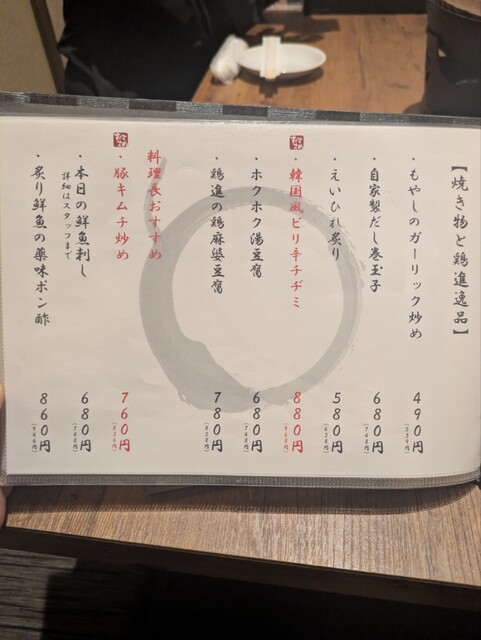 【焼き物と鶏進逸品】
・もやしのガーリック炒め 490円
・自家製だし巻玉子 680円
・えいひれ炙り 580円
・韓国風ピリ辛チヂミ 880円
・ホクホク湯豆腐 680円
・鶏進の鶏麻婆豆腐 780円
料理長おすすめ
・豚キムチ炒め 760円
・本日の鮮魚刺し 680円
詳細はスタッフまで
・炙り鮮魚の薬味ポン酢 860円